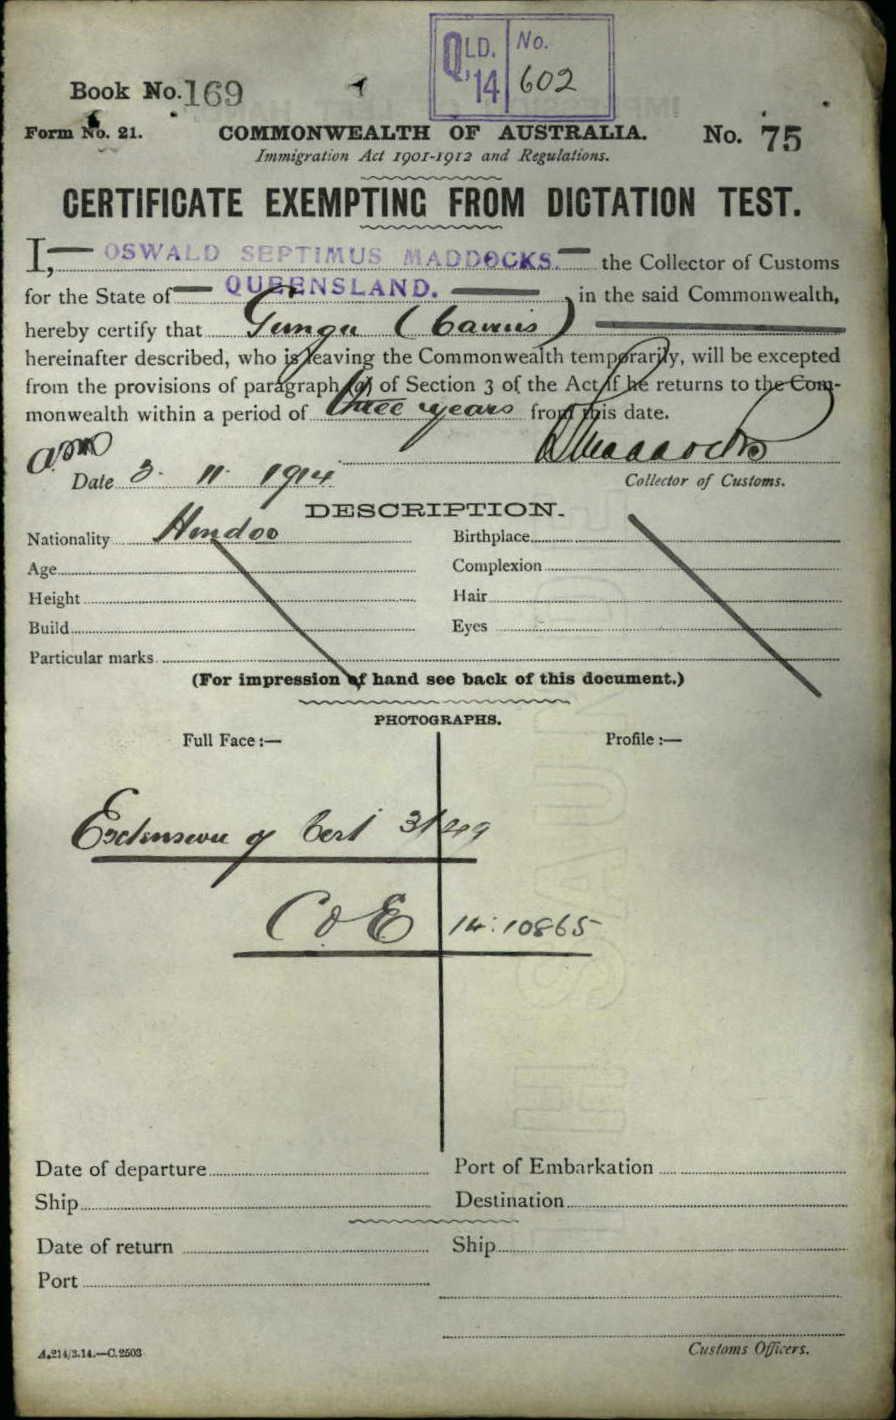 QLD. No.
'14 602
Book No. 169
Form No. 21. COMMONWEALTH OF AUSTRALIA. No. 75
Immigration Act 1901-1912 and Regulations.
CERTIFICATE EXEMPTING FROM DICTATION TEST.
I, OSWALD SEPTIMUS MADDOCKS. the Collector of Customs
for the State of QUEENSLAND. in the said Commonwealth,
hereby certify that Gunga
hereinafter described, who is leaving the Commonwealth temporarily, will be excepted
from the provisions of paragraph (a) of Section 3 of the Act if he returns to the Com-
monwealth within a period of three years from this date.
Date 3. 11. 1914 Collector of Customs.
DESCRIPTION.
Nationality Hindoo Birthplace
Age Complexion
Height Hair
Build Eyes
Particular marks
(For impression of hand see back of this document.)
PHOTOGRAPHS.
Full Face:— Profile:—
Extension of Cert
C of E 14:10865
Date of departure Port of Embarkation
Ship Destination
Date of return Ship
Port
A.214/3.14.—C.2503 Customs Officers.